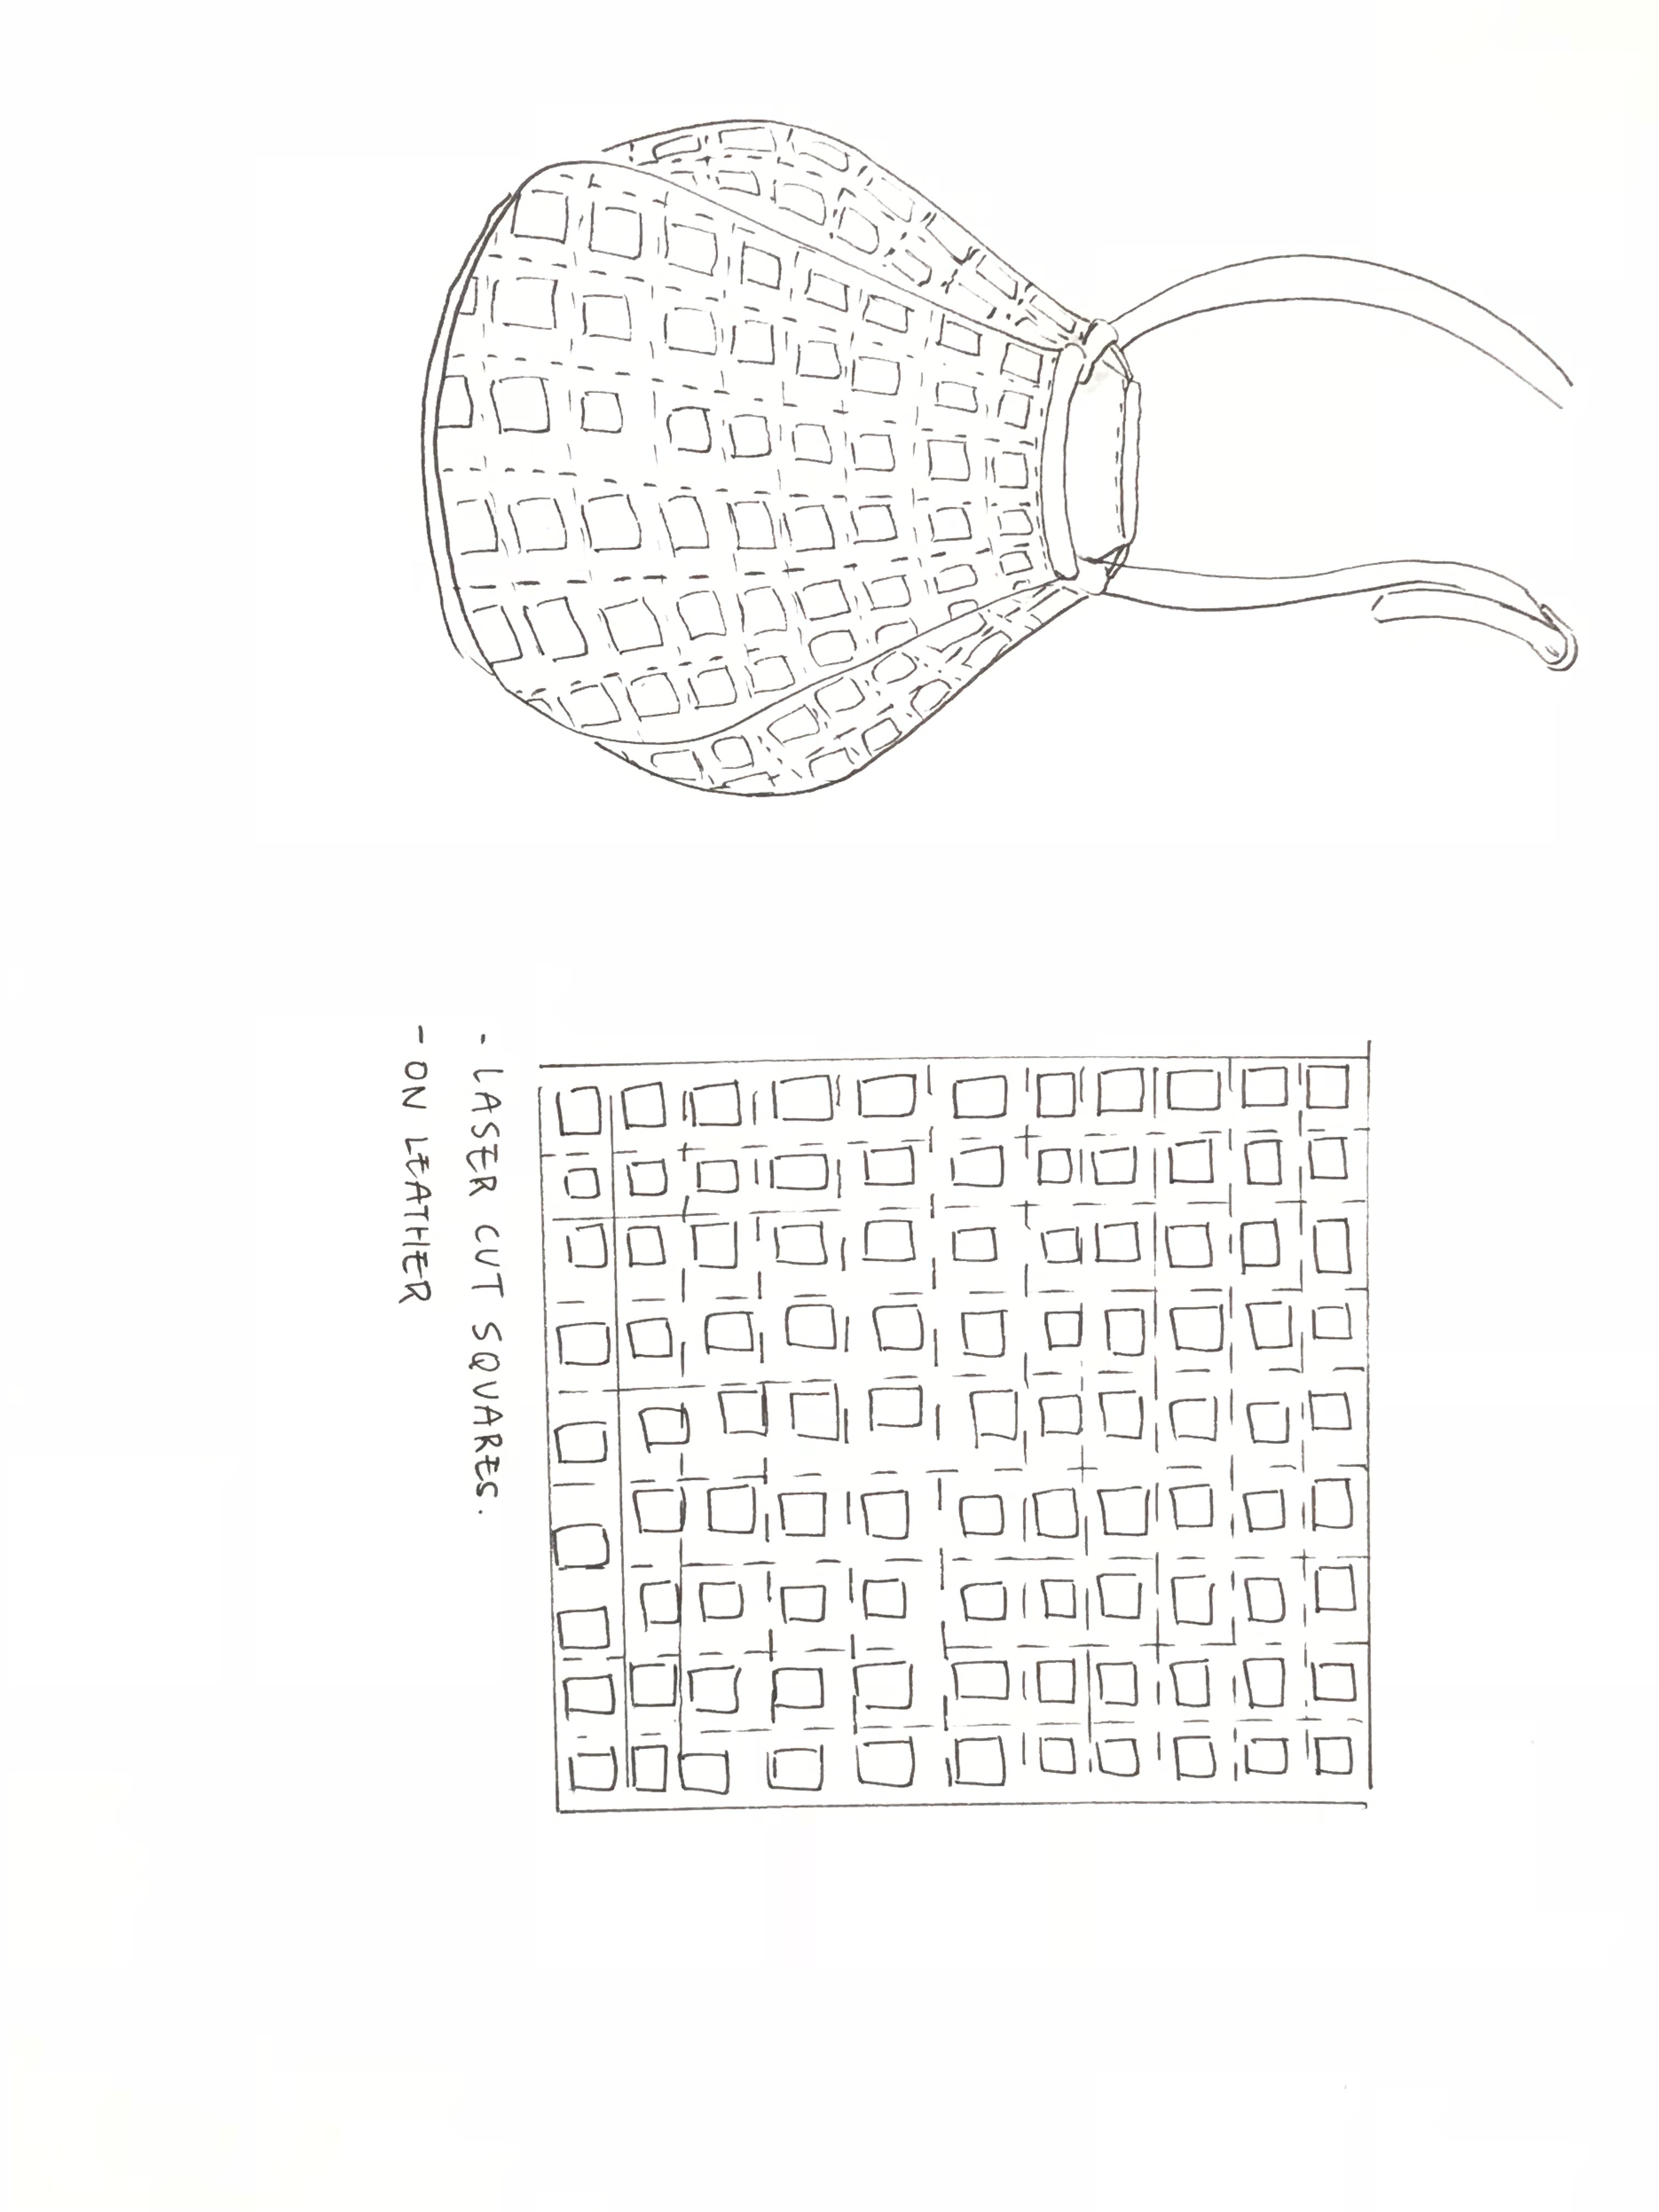 - LASER CUT SQUARES.
- ON LEATHER